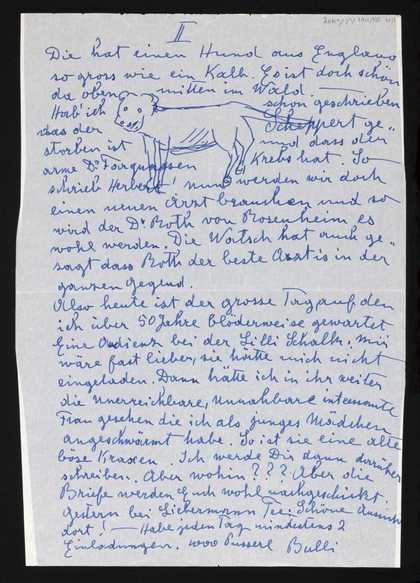 II
Die hat einen Hund aus England
so gross wie ein Kalb. Es ist doch schön
da oben mitten im Wald.
Hab' ich schon geschrieben
dass der Scheppert ge=
storben ist und dass der
arme Dr Farquassen Krebs hat. So
schrieb Herbert! nun werden wir doch
einen neuen Arzt brauchen und so
wird der Dr Roth von Rosenheim es
wohl werden. Die Watsch hat auch ge=
sagt dass Roth der beste Arzt is in der
ganzen Gegend.
Also heute ist der grosse Tag auf den
ich über 50 Jahre blöderweise gewartet
Eine Audienz bei der Lilli Schalk. mir
wäre fast lieber, sie hätte mich nicht
eingeladen. Dann hätte ich in ihr weiter
die Unerreichbare, Unnahbare interessante
Frau gesehen die ich als junges Mädchen
angeschwärmt habe. So ist sie eine alte
böse Kraxen. Ich werde Dir dann darüber
schreiben. Aber wohin??? Aber die
Briefe werden Euch wohl nachgeschickt.
gestern bei Liebermann Tee. Schöne Aussicht
dort! — Habe jeden Tag mindestens 2
Einladungen. 1000 Pusserl Bulli